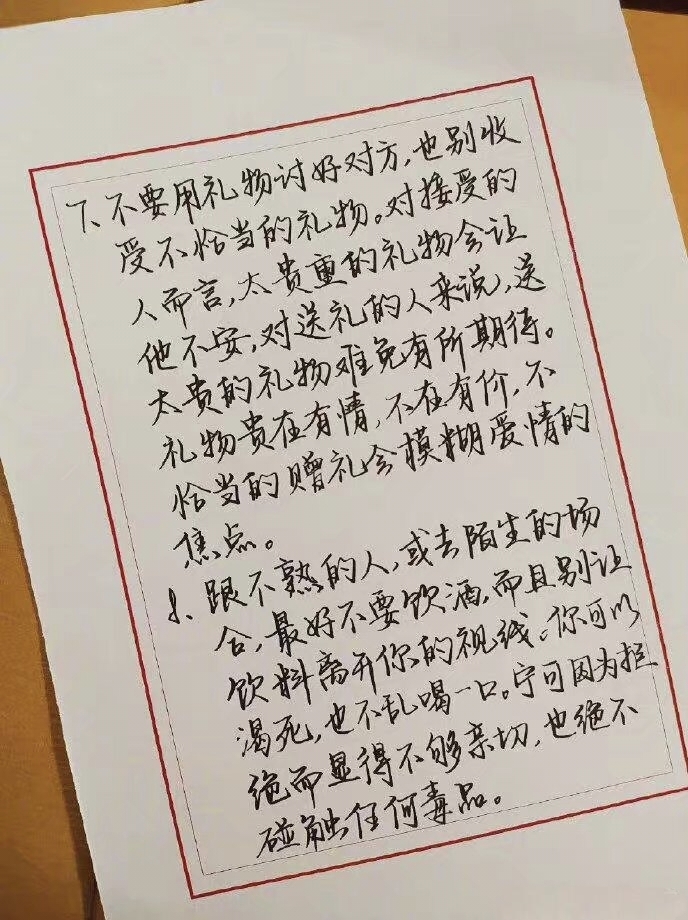 7、不要用礼物讨好对方,也别收
受不恰当的礼物。对接受的
人而言,太贵重的礼物会让
他不安,对送礼的人来说,送
太贵的礼物难免有所期待。
礼物贵在有情,不在有价,不
恰当的赠礼会模糊爱情的
焦点。
8、跟不熟的人,或去陌生的场
合,最好不要饮酒,而且别让
饮料离开你的视线。你可以
渴死,也不乱喝一口。宁可因为拒
绝而显得不够亲切,也绝不
碰触任何毒品。